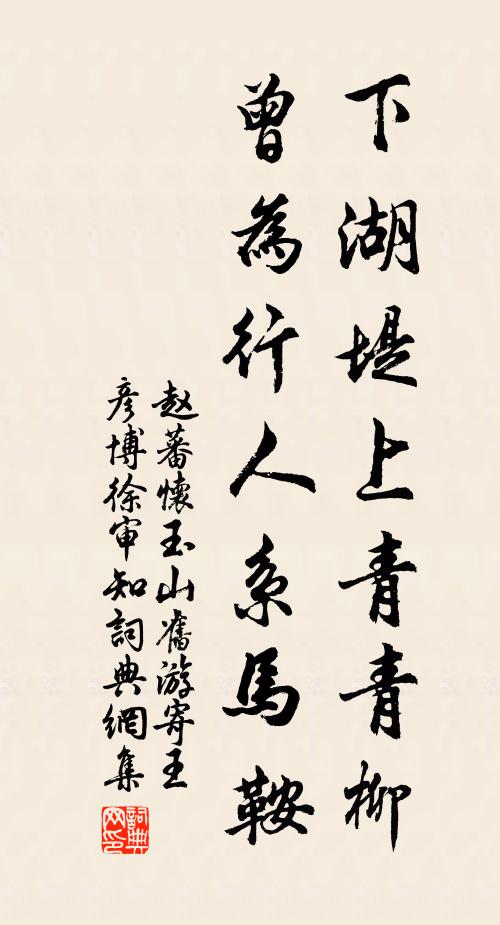 下湖堤上青青柳
曾為行人系馬鞍
赵蕃懷玉山舊游寄王
彦博徐审知詞典網集
詞典網印